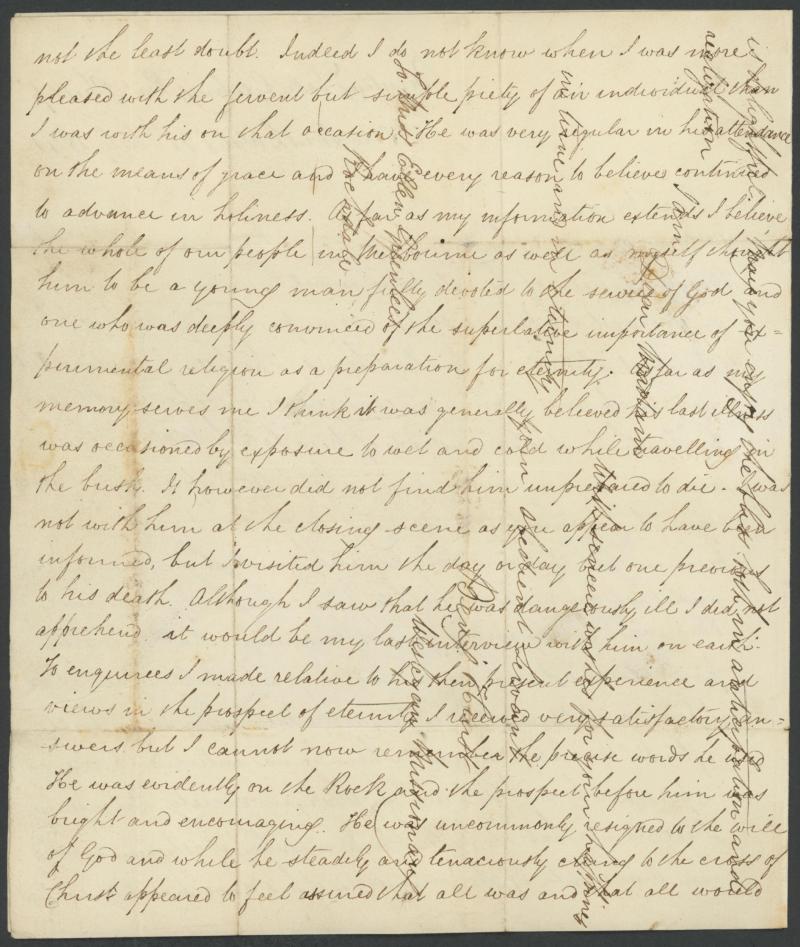 not the least doubt. Indeed I do not know when I was more
pleased with the fervent but simple piety of an individual than
I was with his on that occasion. He was very regular in his attendance
on the means of grace and I have every reason to believe continued
to advance in holiness. As far as my information extends I believe
the whole of our people in Melbourne as well as myself thought
him to be a young man fully devoted to the service of God and
one who was deeply convinced of the superlative importance of ex=
perimental religion as a preparation for eternity. As far as my
memory serves me I think it was generally believed his last illness
was occasioned by exposure to wet and cold while travelling in
the bush. It however did not find him unprepared to die. I was
not with him at the closing scene as you appear to have been
informed, but I visited him the day or day but one previous
to his death. Although I saw that he was dangerously ill I did not
apprehend it would be my last interview with him on earth.
To enquiries I made relative to his then present experience and
views in the prospect of eternity I received very satisfactory an-
swers but I cannot now remember the precise words he used
He was evidently on the Rock and the prospect before him was
bright and encouraging. He was uncommonly resigned to the will
of God and while he steadily and tenaciously clung to the cross of
Christ appeared to feel assured that all was and that all would
is delightful. May you enjoy the full in anticipation and
realization I am Dear Madam with sincere wishes for your happiness
in time and in eternity your obedient Servant
To Miss Ellen Wesleyan Missionary
Rochdale